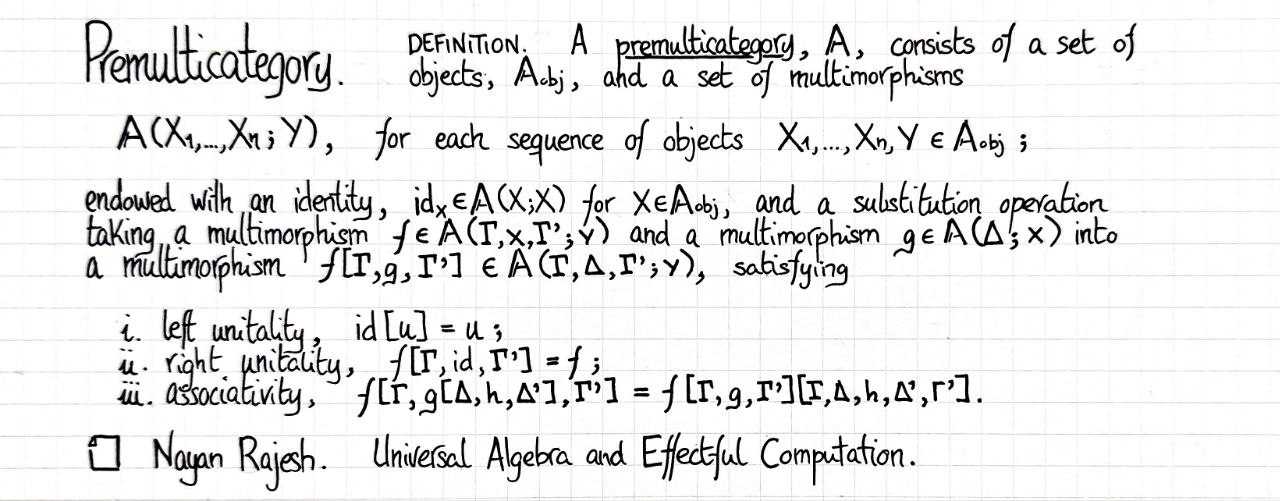 Premulticategory. DEFINITION. A premulticategory, A, consists of a set of
objects, Aobj, and a set of multimorphisms
A(X₁,...,Xₙ; Y), for each sequence of objects X₁,...,Xₙ, Y ∈ Aobj ;
endowed with an identity, idₓ ∈ A(X;X) for X∈Aobj, and a substitution operation
taking a multimorphism f ∈ A(Γ,X,Γ';Y) and a multimorphism g ∈ A(Δ;X) into
a multimorphism f[Γ,g,Γ'] ∈ A(Γ,Δ,Γ';Y), satisfying
i. left unitality, id[u] = u ;
ii. right unitality, f[Γ,id,Γ'] = f ;
iii. associativity, f[Γ,g[Δ,h,Δ'],Γ'] = f[Γ,g,Γ'][Γ,Δ,h,Δ',Γ'].
Nayan Rajesh. Universal Algebra and Effectful Computation.